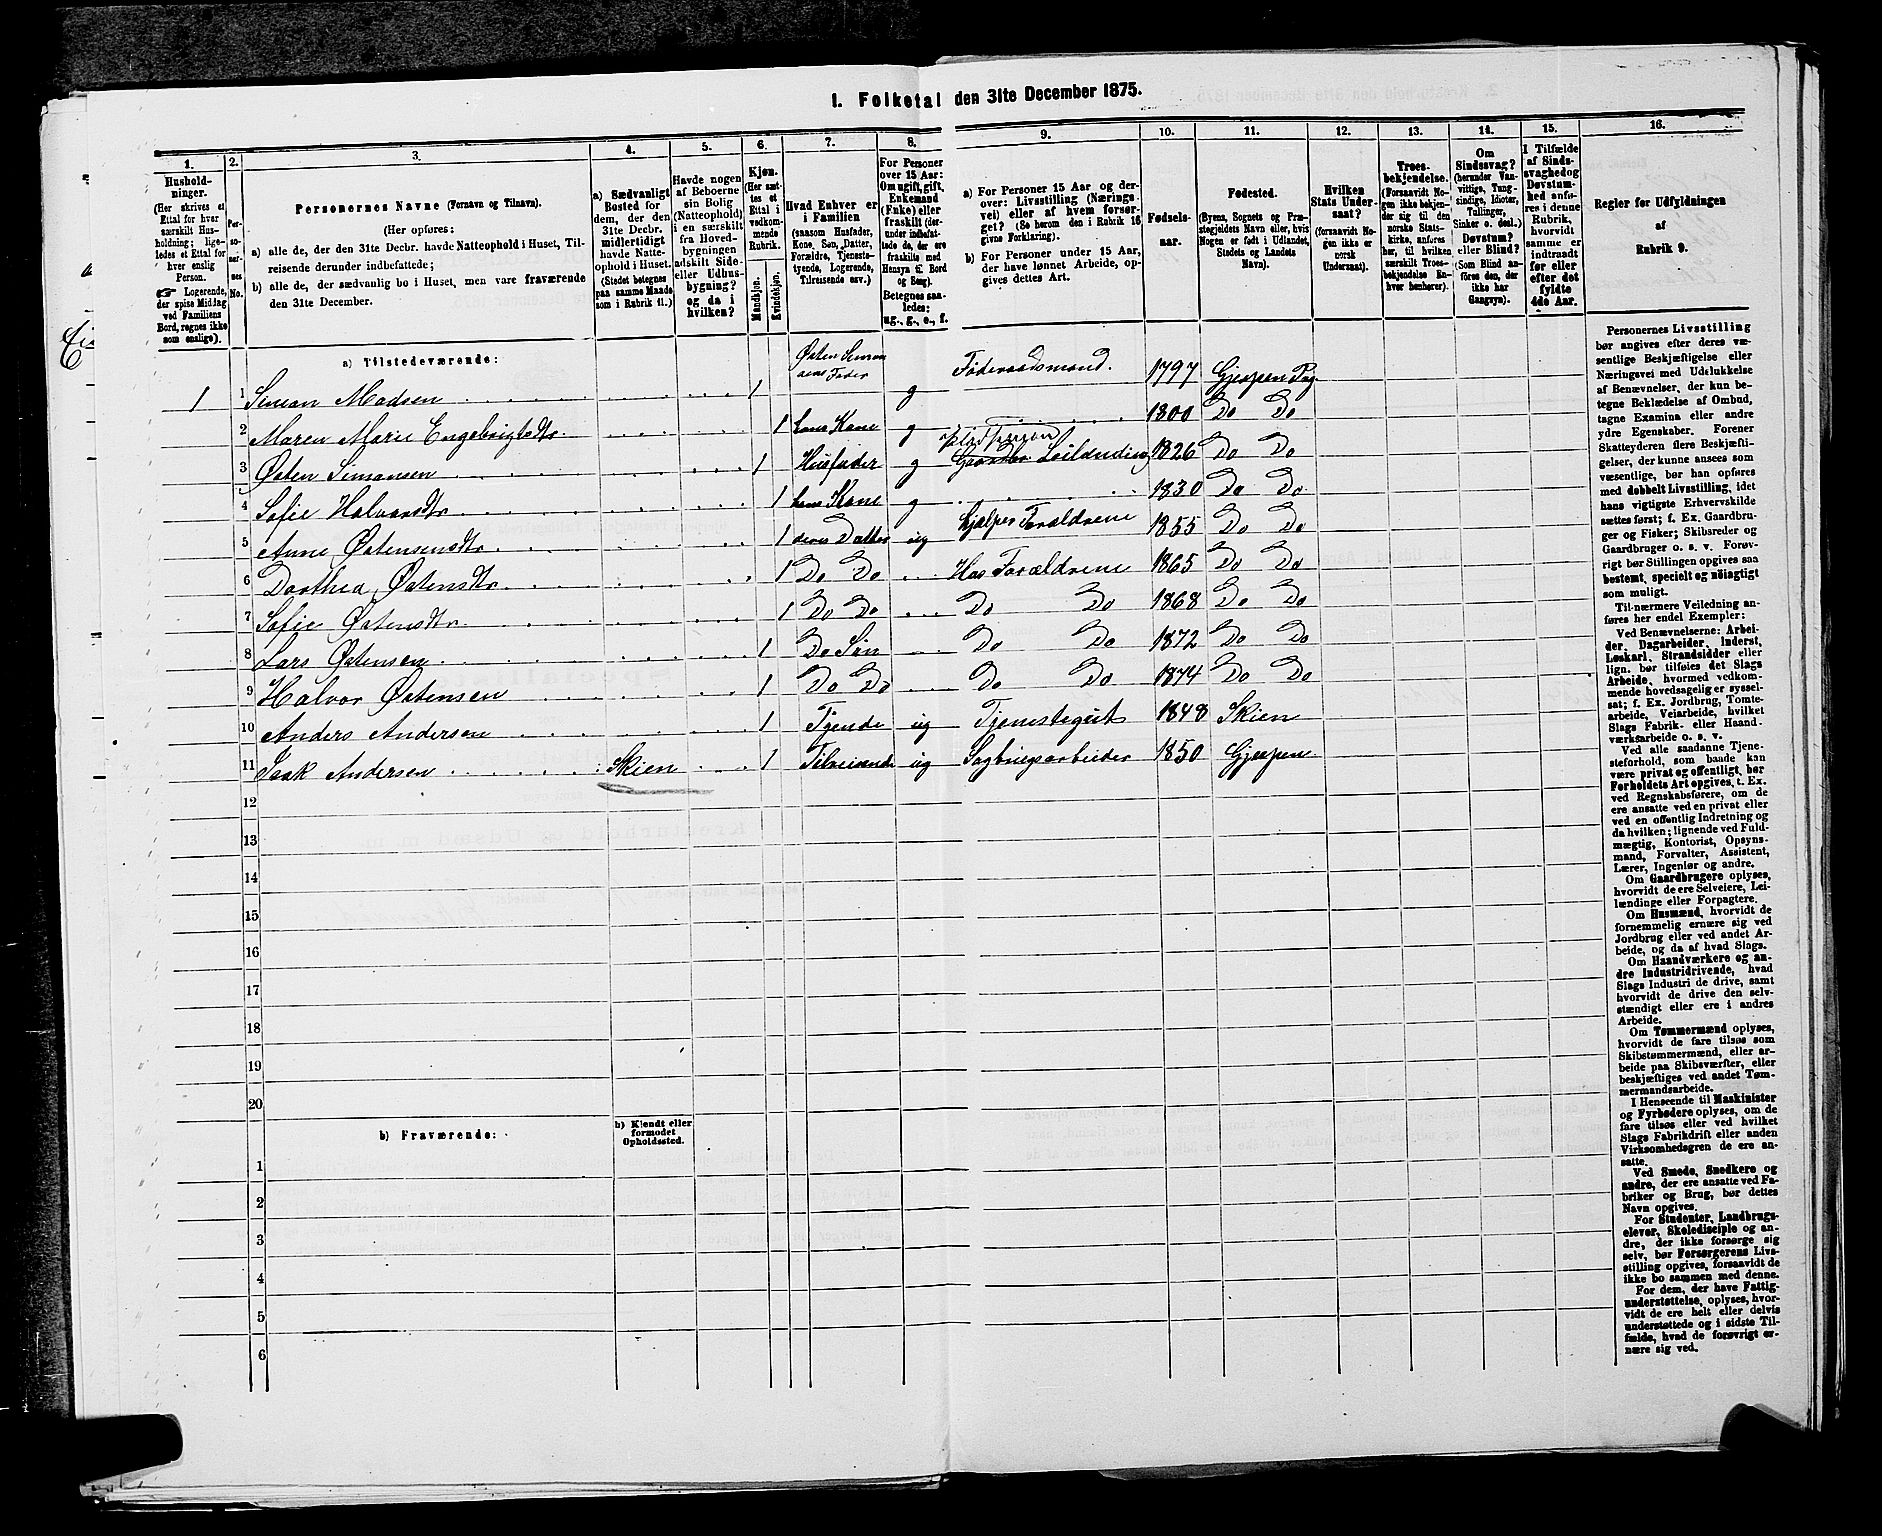 1. Folketal den 31te December 1875.
1.
2.
3.
4.
5.
6.
7.
8.
9.
10.
11.
12.
13.
14.
15.
16.
Husholdninger.
(Her skrives et Ettal for hver særskilt Husholdning; ligeledes et Ettal for hver enslig Person.
☞ Logerende, der spise Middag ved Familiens Bord, regnes ikke som enslige).
Personernes No.
Personernes Navne (Fornavn og Tilnavn).
(Her opføres:
a) alle de, der den 31te Decbr. havde Natteophold i Huset, Tilreisende derunder indbefattede;
b) alle de, der sædvanlig bo i Huset, men vare fraværende den 31te December.
a) Sædvanligt Bosted for dem, der den 31te Decbr. midlertidigt havde Natteophold i Huset. (Stedet betegnes paa samme Maade som i Rubrik 11.)
Havde nogen af Beboerne sin Bolig (Natteophold) i en særskilt fra Hovedbygningen adskilt Side- eller Udhusbygning? og da i hvilken?
Kjøn.
(Her sættes et Ettal i vedkommende Rubrik.
Mandkjøn.
Kvindekjøn.
Hvad Enhver er i Familien
(saasom Husfader, Kone, Søn, Datter, Forældre, Tjenestetyende, Logerende, Tilreisende osv.)
For Personer over 15 Aar: Om ugift, gift, Enkemand (Enke) eller fraskilt (derunder indbefattede de, der ere fraskilte med Hensyn til Bord og Seng).
Betegnes saaledes:
ug., g., e., f.
a) For Personer 15 Aar og derover: Livsstilling (Næringsvei) eller af hvem forsørget? (Se herom den i Rubrik 16 givne Forklaring).
b) For Personer under 15 Aar, der have lønnet Arbeide, opgives dettes Art.
Fødselsaar.
Fødested.
(Byens, Sognets og Præstegjeldets Navn eller, hvis Nogen er født i Udlandet, Stedets og Landets Navn).
Hvilken Stats Undersaat?
(forsaavidt Nogen ikke er norsk Undersaat).
Troesbekjendelse.
(Forsaavidt Nogen ikke bekjender sig til den norske Statskirke, anføres her, til hvilken særskilt Troesbekjendelse Enhver henhører).
Om Sindssvag? (herunder Vanvittige, Tungsindige, Idioter, Tullinger, Sinker o. desl.)
Døvstum? eller Blind?
(Som Blind anføres den, der ikke har Gangsyn).
I Tilfælde af Sindssvaghed og Døvstumhed anføres i denne Rubrik, hvorvidt samme er indtraadt før eller efter det fyldte 4de Aar.
Regler for Udfyldningen
af
Rubrik 9.
a) Tilstedeværende:
1 1 Simon Madsen 1 Østen Simonsens Fader g Føderaadsmand. 1797 Gjerpen Pg.
2 Maren Marie Engebrigtsdtr 1 hans Kone g 1800 Do Do
3 Østen Simonsen 1 Husfader g Gaardbr Leilænding 1826 Do Do
4 Sofie Halvorsdtr 1 hans Kone g 1830 Do Do
5 Anne Østensensdtr 1 deres Datter ug hjælper Forældrene 1855 Do Do
6 Dorthea Østensdtr 1 Do Do Hos Forældrene 1865 Do Do
7 Sofie Østensdtr 1 Do Do Do Do 1868 Do Do
8 Lars Østensen 1 Do Søn Do Do 1872 Do Do
9 Halvor Østensen 1 Do Do Do Do 1874 Do Do
10 Anders Andersen 1 Tyende ug Tjenestegut 1848 Skien
11 Isak Andersen Skien 1 Tilreisende ug Sagbrugsarbeider 1850 Gjerpen
12
13
14
15
16
17
18
19
20
b) Fraværende:
b) Kjendt eller formodet Opholdssted.
1
2
3
4
5
6
Personernes Livsstilling
bør angives efter deres væ-
sentlige Beskjæftigelse eller
Næringsvei med Udelukkelse
af Benævnelser, der kun be-
tegne Beklædelse af Ombud,
tagne Examina eller andre
ydre Egenskaber. Forener
Skatteyderen flere Beskjæfti-
gelser, der kunne ansees som
væsentlige, bør han opføres
med dobbelt Livsstilling, idet
hans vigtigste Erhvervskilde
sættes først; f. Ex. Gaardbru-
ger og Fisker; Skibsreder og
Gaardbruger o. s. v. Forøv-
rigt bør Stillingen opgives saa
bestemt, specielt og nöiagtigt
som muligt.
Til nærmere Veiledning an-
føres her endel Exempler:
Ved Benævnelserne: Arbei-
der, Dagarbeider, Inderst,
Løskarl, Strandsidder eller
lign. bør tilføies det Slags
Arbeide, hvormed vedkom-
mende hovedsagelig er syssel-
sat; f. Ex. Jordbrug, Tomte-
arbeide, Veiarbeide, hvilket
Slags Fabrik- eller Haand-
værksarbeide o. s. v.
Ved alle saadanne Tjene-
steforhold, som baade kan
være privat og offentligt, bør
Forholdets Art opgives, t. Ex.
ved Regnskabsførere, om de
ere ansatte ved en privat eller
ved en offentlig Indretning og
da hvilken; lignende ved Fuld-
mægtig, Kontorist, Opsyns-
mand, Forvalter, Assistent,
Lærer, Ingeniør og andre.
Om Gaardbrugere oplyses,
hvorvidt de ere Selveiere, Lei-
lændinge eller Forpagtere.
Om Husmænd, hvorvidt de
fornemmelig ernære sig ved
Jordbrug eller ved andet Ar-
beide, og da af hvad Slags.
Om Haandværkere og an-
dre Industridrivende, hvad
Slags Industri de drive, samt
hvorvidt de drive den selv-
stændigt eller ere i andres
Arbeide.
Om Tømmermænd oplyses,
hvorvidt de fare tilsøs som
Skibstømmermænd, eller ar-
beide paa Skibsværfter, eller
beskjæftiges ved andet Tøm-
mermandsarbeide.
I Henseende til Maskinister
og Fyrbødere oplyses, om de
fare tilsøs eller ved hvilket
Slags Fabrikdrift eller anden
Virksomhedsgren de ere an-
satte.
Ved Smede, Snedkere og
andre, der ere ansatte ved Fa-
briker og Brug, bør dettes
Navn opgives.
For Studenter, Landbrugs-
elever, Skoledisciple og an-
dre, der ikke forsørge sig
selv, bør Forsørgerens Livs-
stilling opgives, forsaavidt de
ikke bo sammen med denne.
For dem, der have Fattig-
understøttelse, oplyses, hvor-
vidt de ere helt eller delvis
understøttede og i sidste Til-
fælde, hvad de forøvrigt er-
nære sig ved.